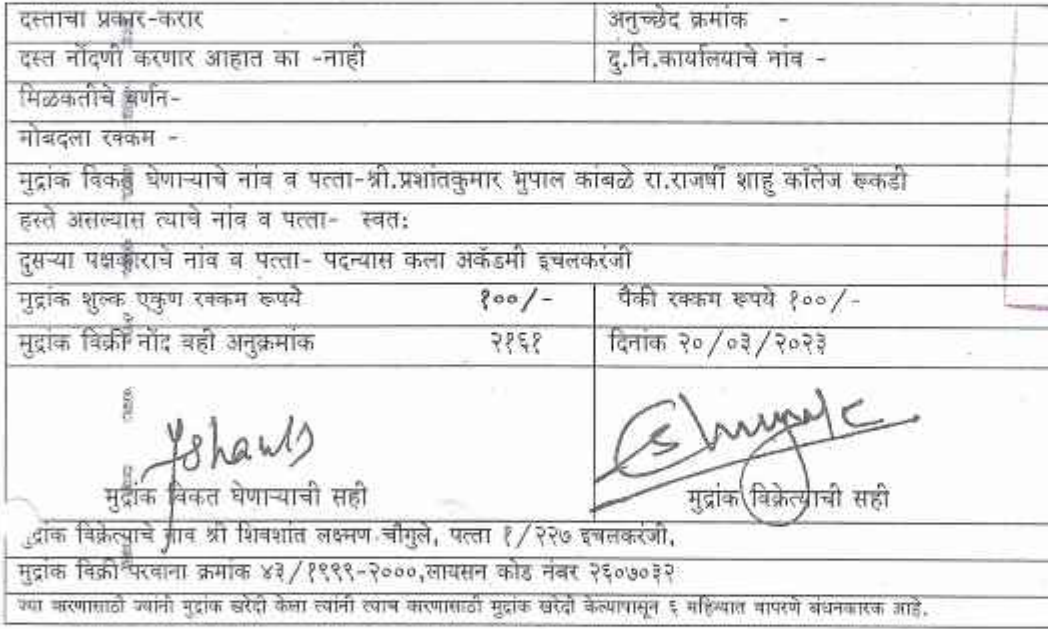 दस्ताचा प्रकार-करार अनुच्छेद क्रमांक -
दस्त नोंदणी करणार आहात का -नाही दु.नि.कार्यालयाचे नांव -
मिळकतीचे वर्णन-
मोबदला रक्कम -
मुद्रांक विकत घेणाऱ्याचे नांव व पत्ता-श्री.प्रशांतकुमार भुपाल कांबळे रा.राजर्षी शाहु कॉलेज रूकडी
हस्ते असल्यास त्याचे नांव व पत्ता- स्वत:
दुसऱ्या पक्षकाराचे नांव व पत्ता- पदन्यास कला अकॅडमी इचलकरंजी
मुद्रांक शुल्क एकुण रक्कम रूपये १००/- पैकी रक्कम रूपये १००/-
मुद्रांक विक्री नोंद वही अनुक्रमांक २१६१ दिनांक २०/०३/२०२३
मुद्रांक विकत घेणाऱ्याची सही मुद्रांक विक्रेत्याची सही
मुद्रांक विक्रेत्याचे नाव श्री शिवशांत लक्ष्मण चौगुले, पत्ता १/२२७ इचलकरंजी,
मुद्रांक विक्री परवाना क्रमांक ४३/१९९९-२०००,लायसन कोड नंबर २६०७०३२
ज्या कारणासाठी ज्यांनी मुद्रांक खरेदी केला त्यांनी त्याच कारणासाठी मुद्रांक खरेदी केल्यापासून ६ महिन्यात वापरणे बंधनकारक आहे.